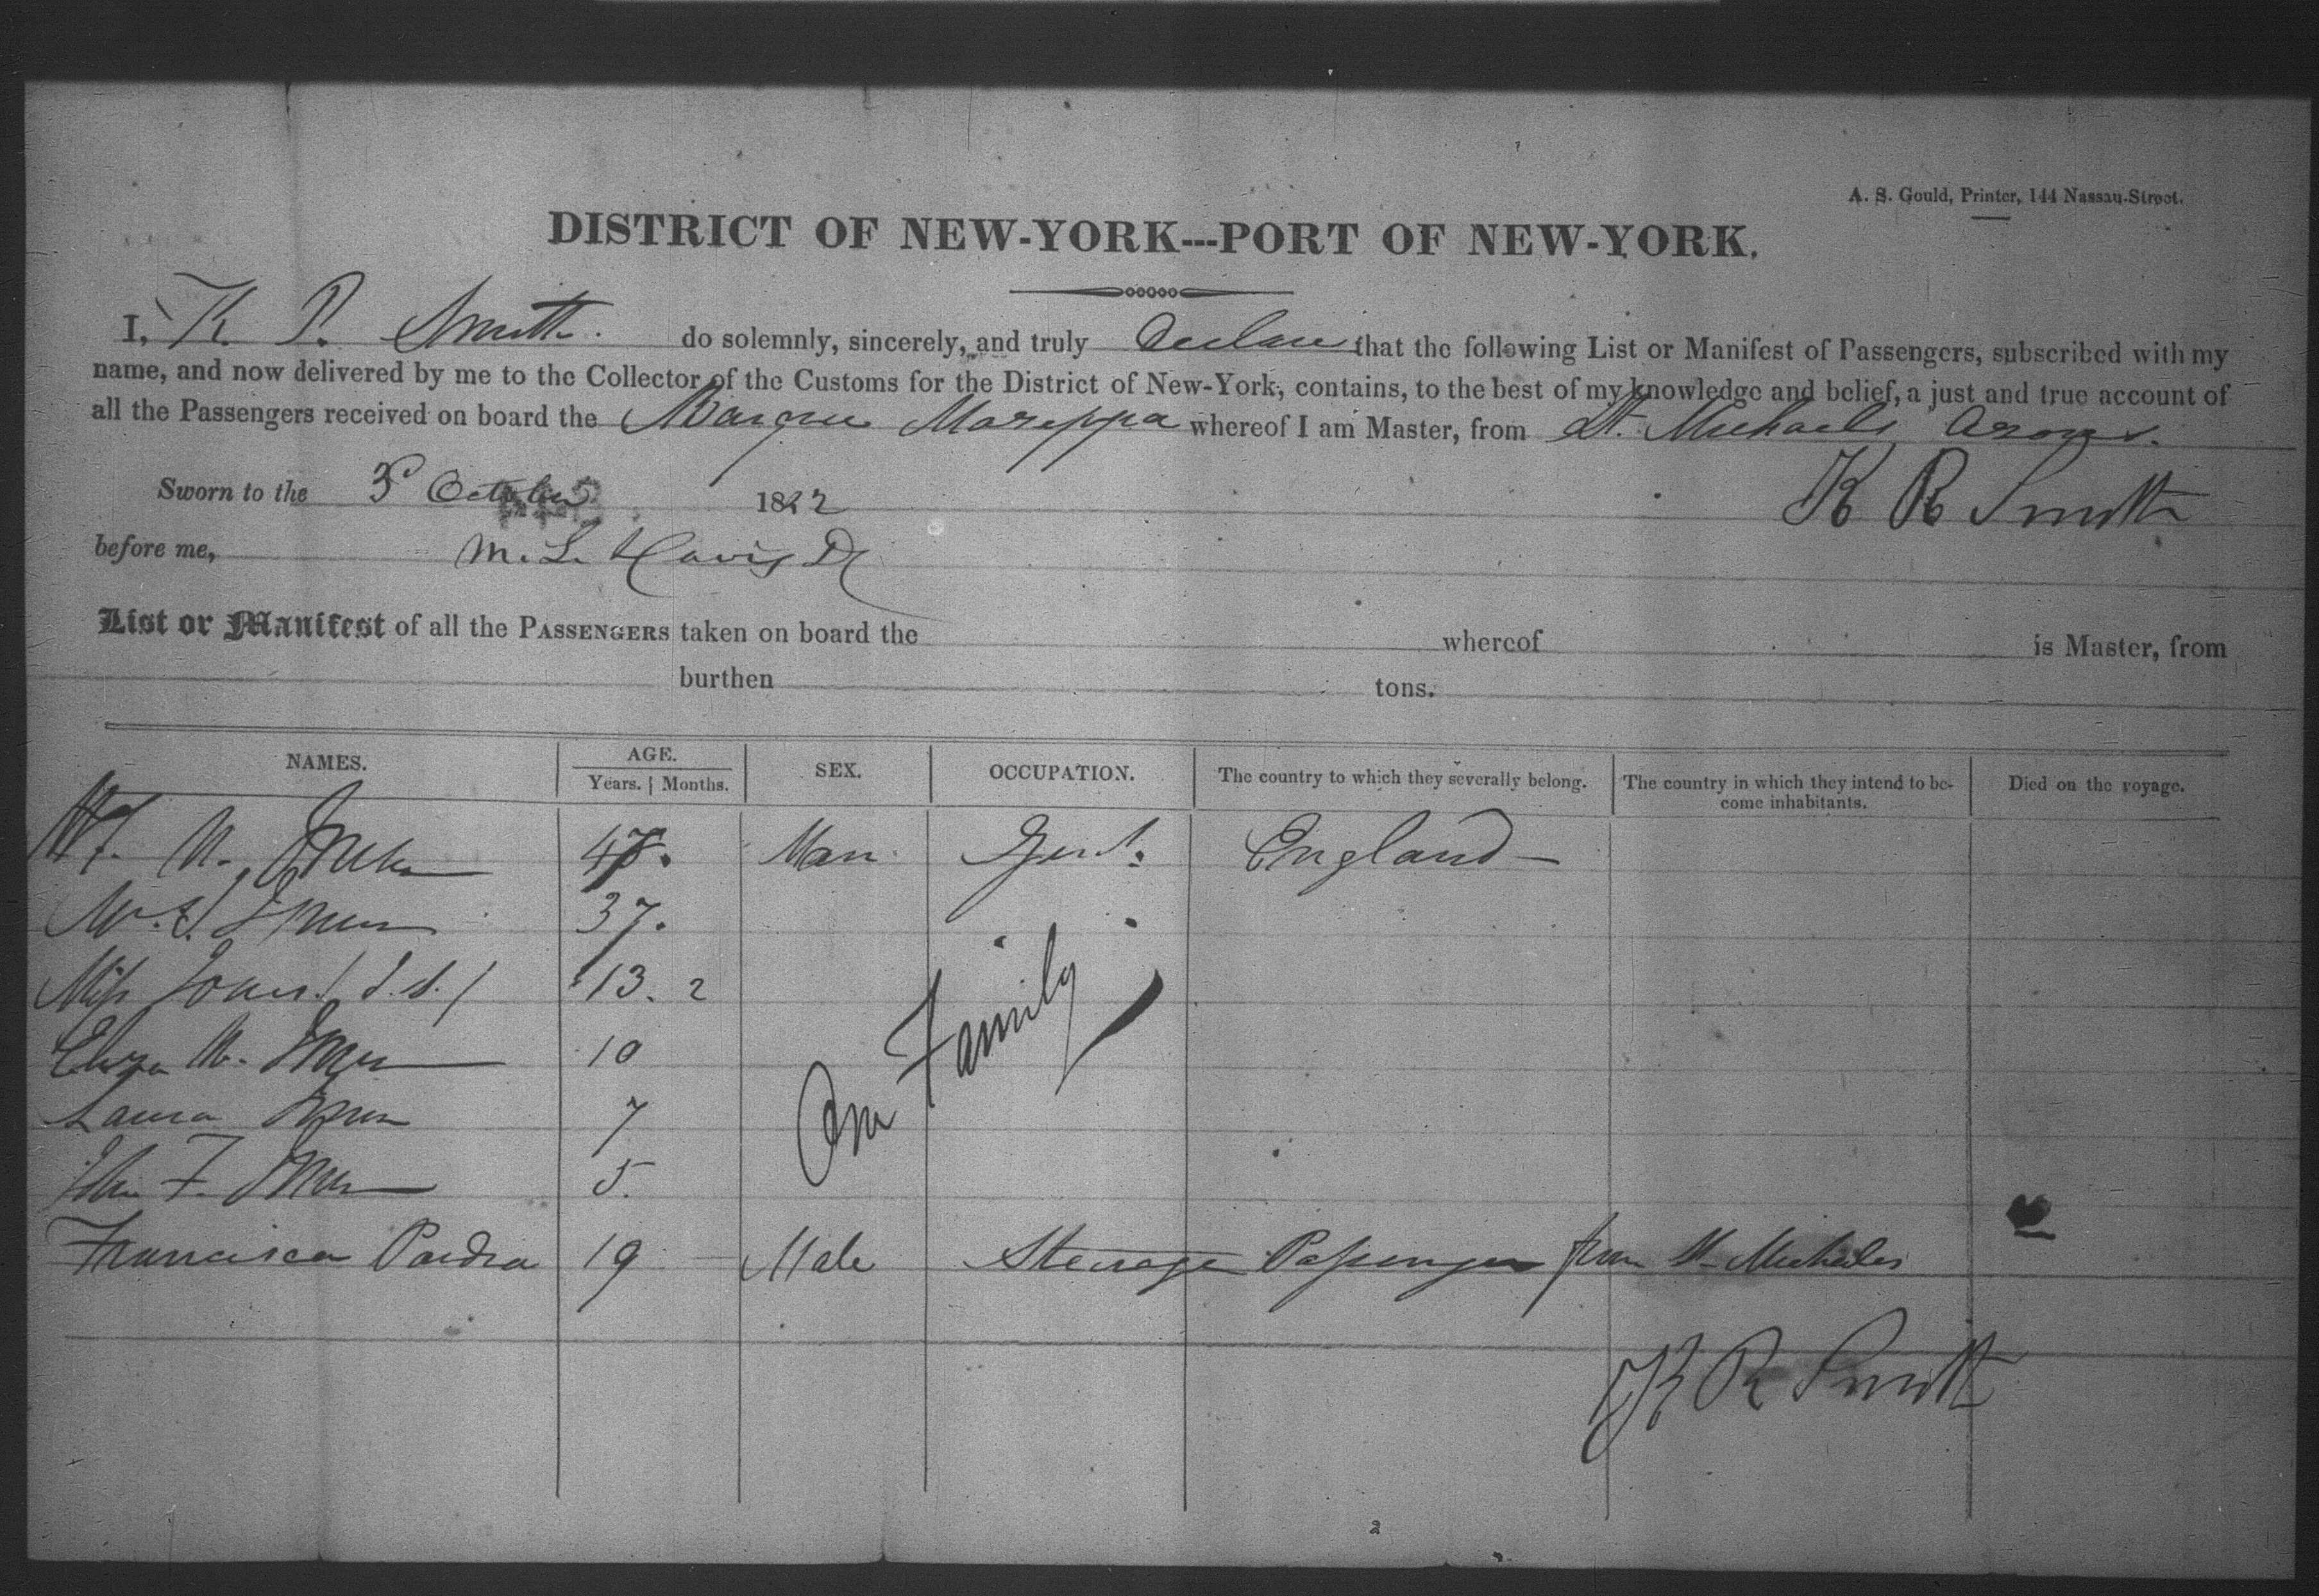 A. S. Gould, Printer, 144 Nassau-Street.
DISTRICT OF NEW-YORK---PORT OF NEW-YORK.
I, K. P. Smith. do solemnly, sincerely, and truly Declare that the following List or Manifest of Passengers, subscribed with my
name, and now delivered by me to the Collector of the Customs for the District of New-York, contains, to the best of my knowledge and belief, a just and true account of
all the Passengers received on board the Barque Mazeppa whereof I am Master, from St. Michaels Azores.
Sworn to the 3d October 1842
K R Smith
before me, M. L. Davis
List or Manifest of all the PASSENGERS taken on board the whereof is Master, from
burthen tons.
NAMES. AGE. SEX. OCCUPATION. The country to which they severally belong. The country in which they intend to be- Died on the voyage.
Years. Months. come inhabitants.
N. 47. Man. Gent. England
37.
Miss 13. 2
Eliza 10
Laura 7
John F. 5.
One Family
Francisca Padra 19 Male Steerage Passenger from St Michaels
K R Smith
2